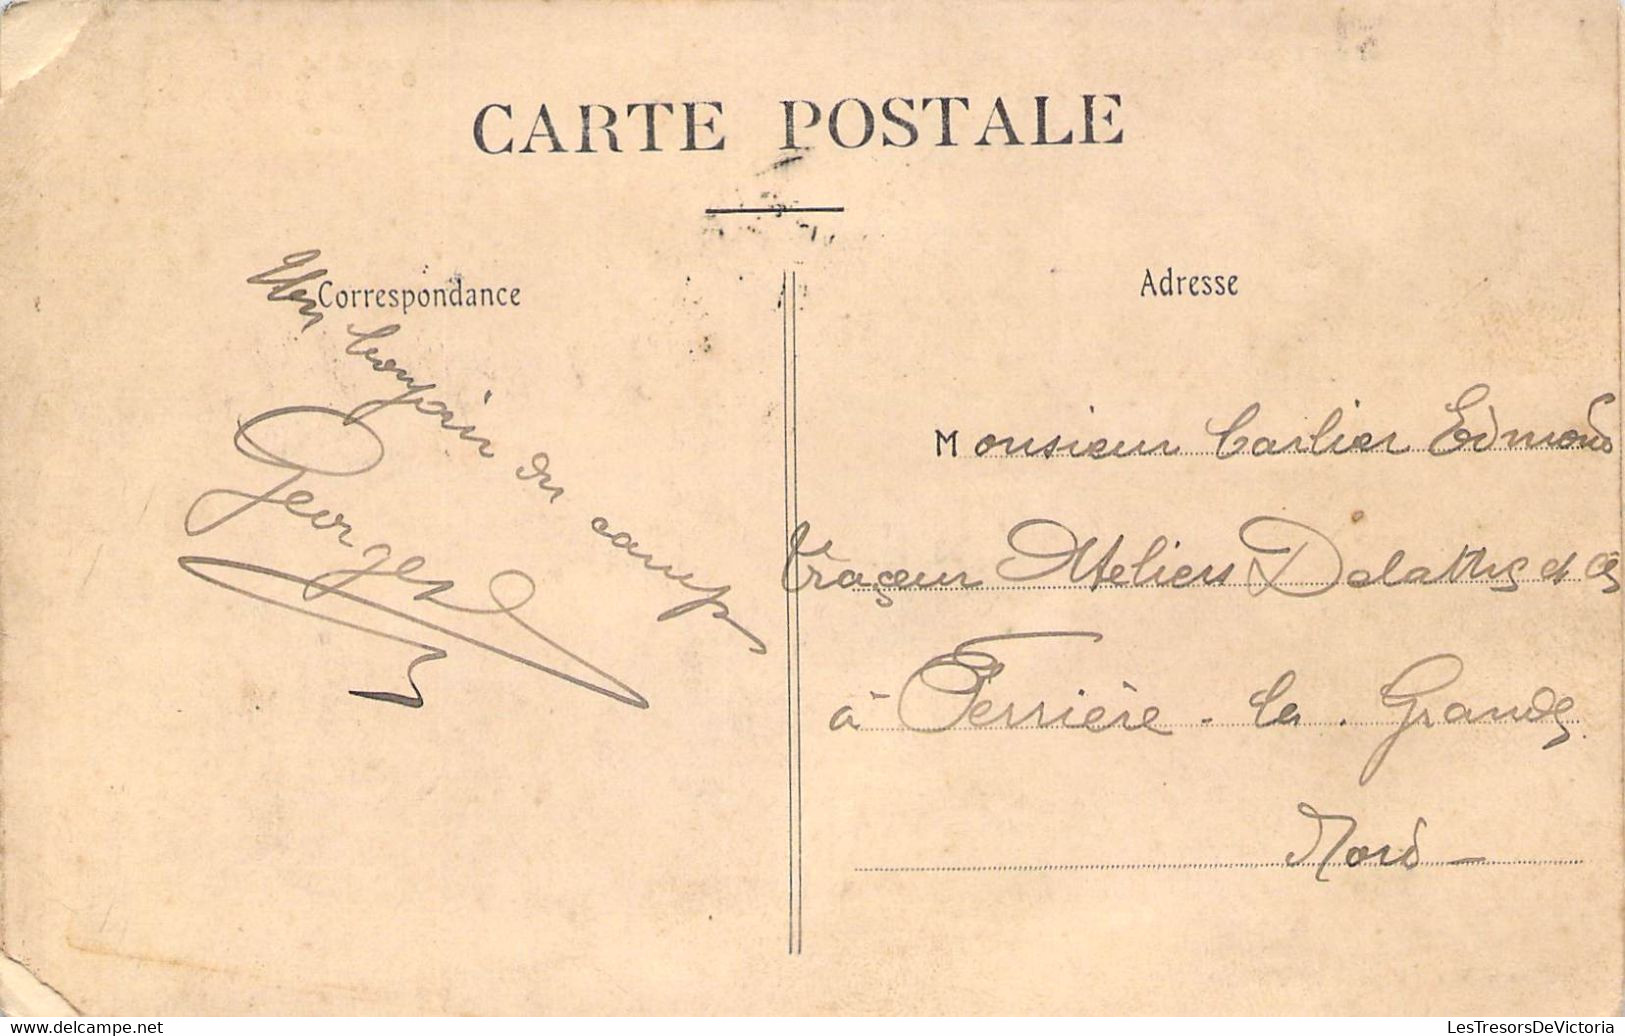 CARTE POSTALE
Correspondance
Un bonjour du camp
Georges
Adresse
Monsieur Carlier Edmond
traçeur Ateliers Delattre et Cie
à Ferrière-la-Grande
Nord -
www.delcampe.net
LesTresorsDeVictoria